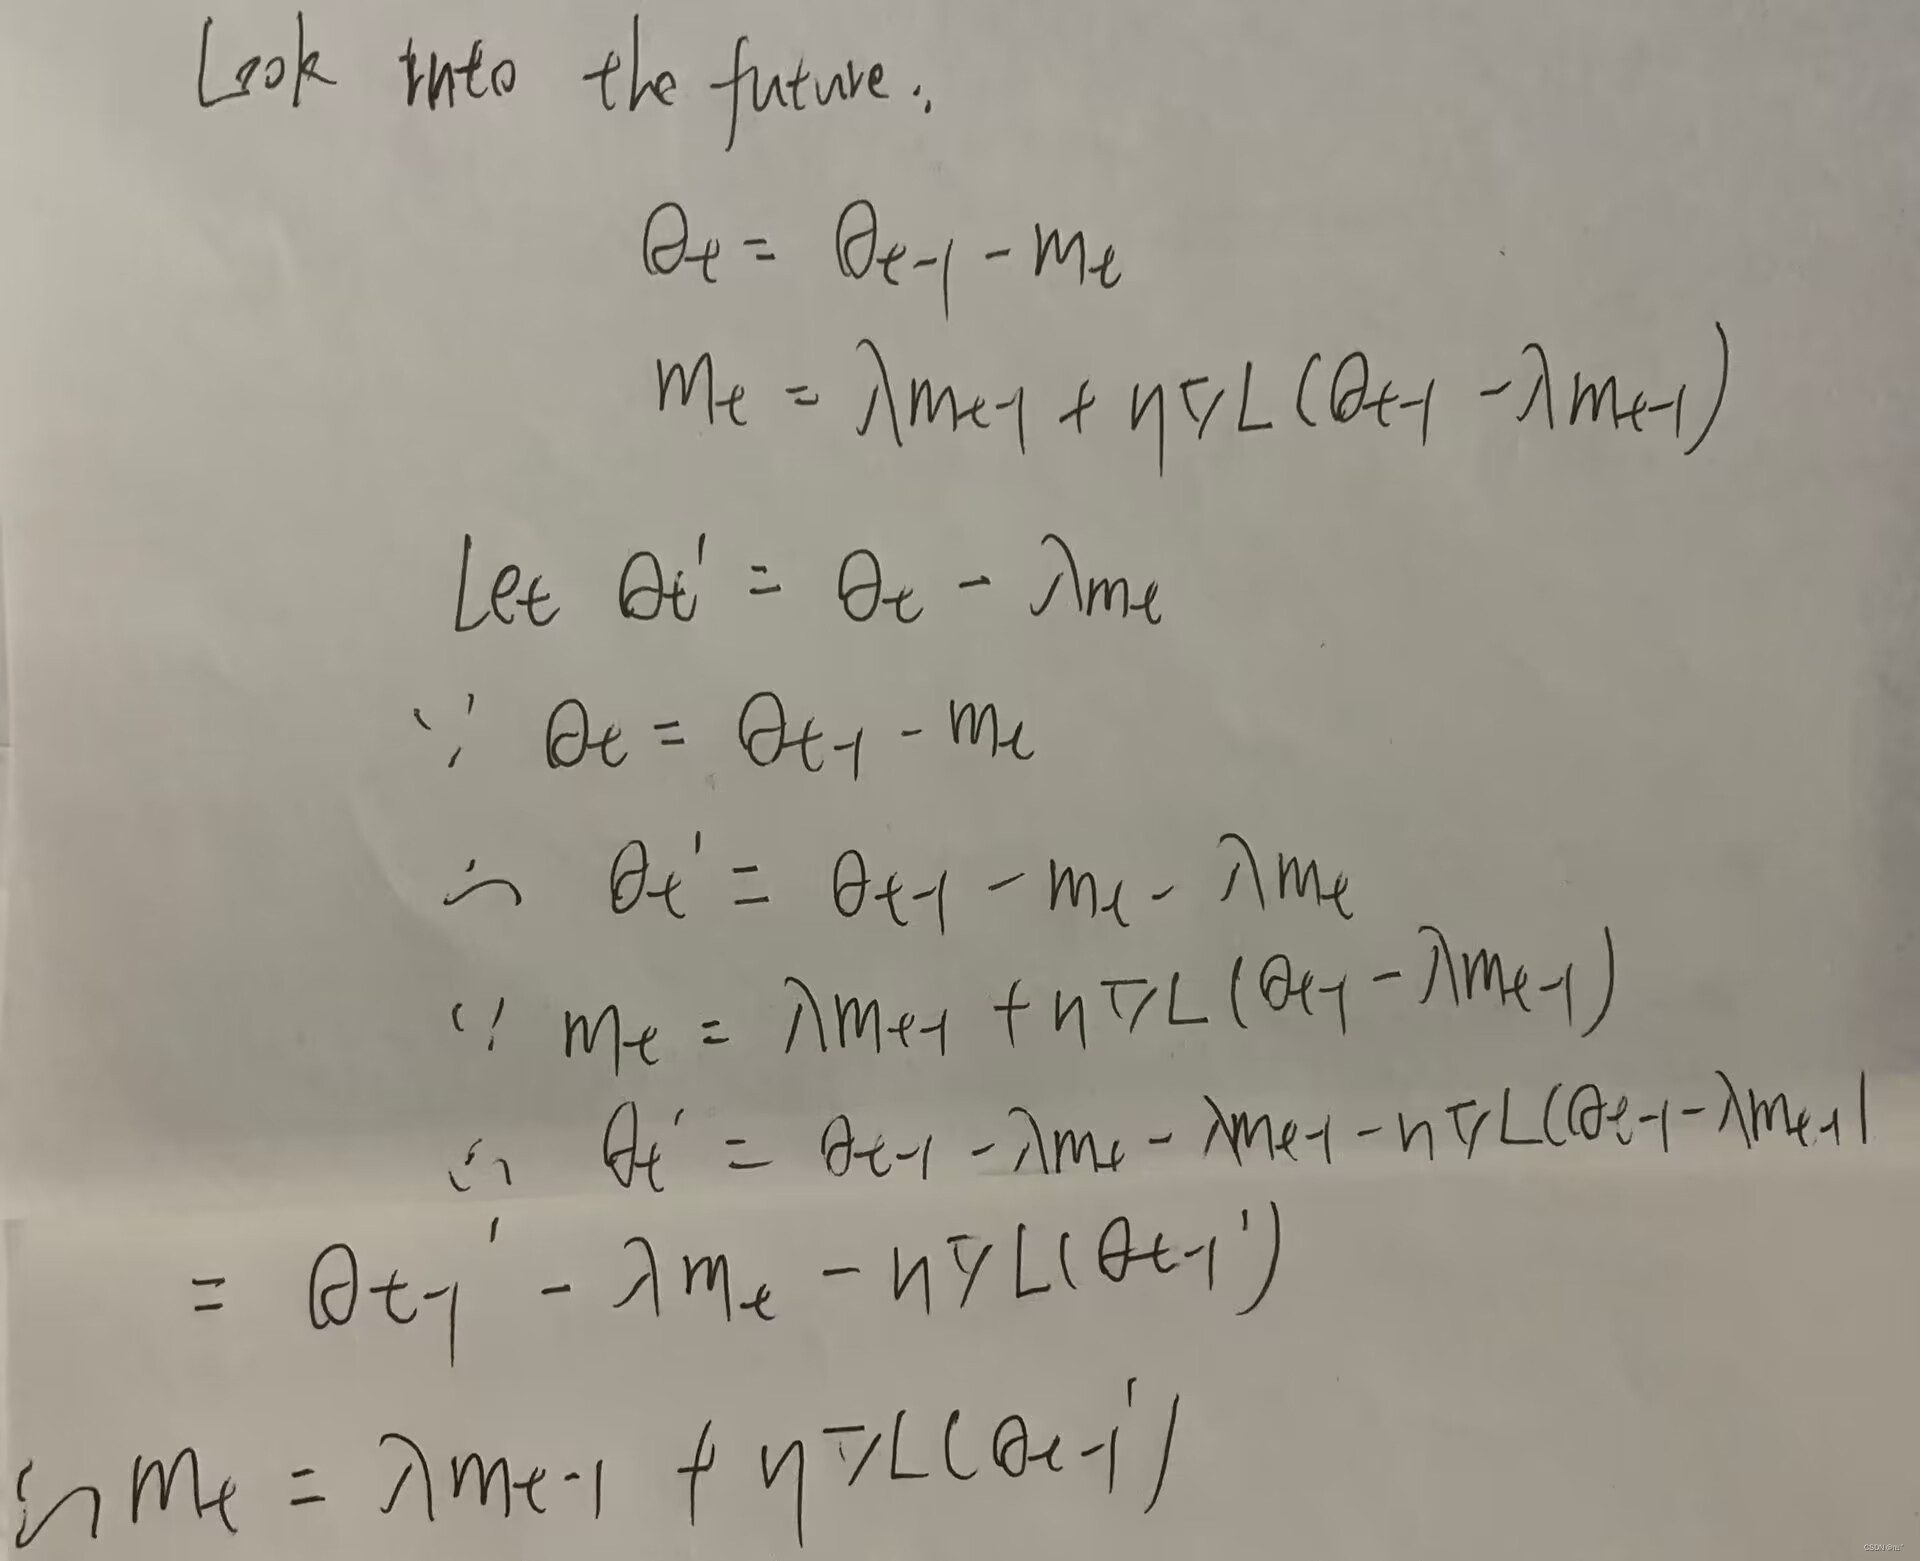 Look into the future.
θt = θt-1 - mt
mt = λmt-1 + η∇L(θt-1 - λmt-1)
Let θt' = θt - λmt
∵ θt = θt-1 - mt
∴ θt' = θt-1 - mt - λmt
∵ mt = λmt-1 + η∇L(θt-1 - λmt-1)
∴ θt' = θt-1 - λmt - λmt-1 - η∇L(θt-1 - λmt-1)
= θt-1' - λmt - η∇L(θt-1')
∴ mt = λmt-1 + η∇L(θt-1')